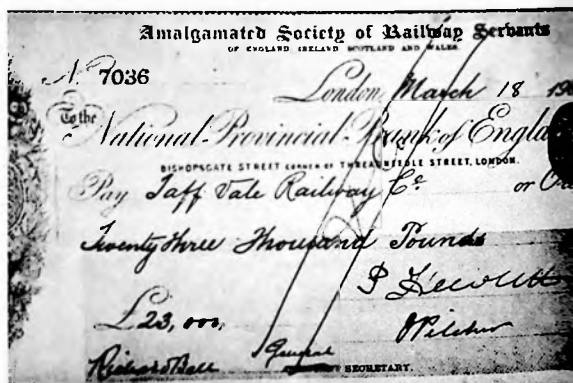 Amalgamated Society of Railway Servants
OF ENGLAND IRELAND SCOTLAND AND WALES.
No. 7036
London, March 18 19
To the
National Provincial Bank of Engla
BISHOPSGATE STREET CORNER OF THREADNEEDLE STREET, LONDON.
Pay Taff Vale Railway Co or Or
Twenty three Thousand Pounds
£23,000
Richard Bell General SECRETARY.